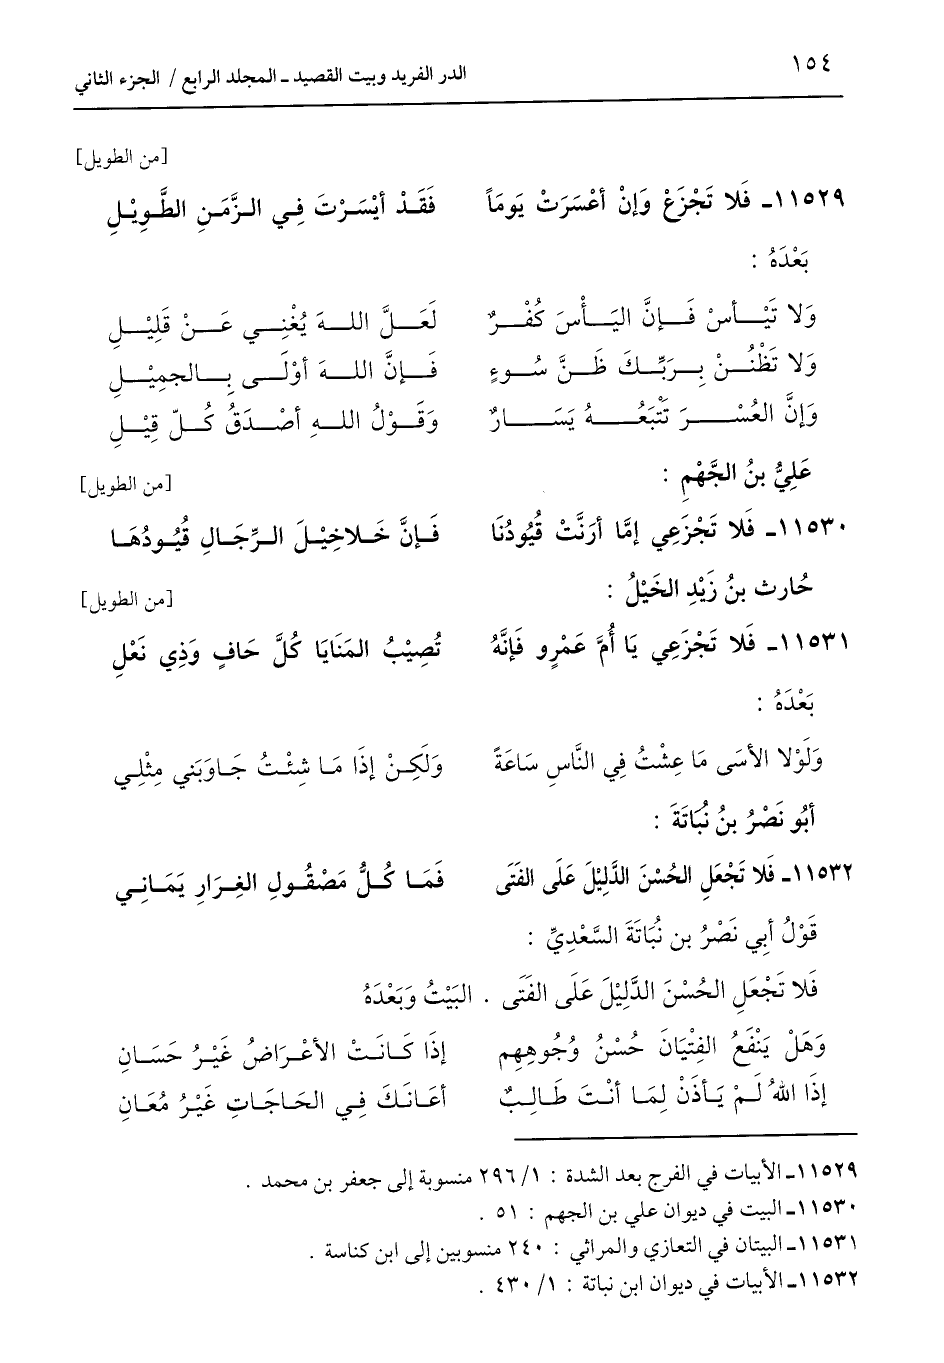 ١٥٤ الدر الفريد وبيت القصيد ـ المجلد الرابع / الجزء الثاني
[من الطويل]
١١٥٢٩ـ فَلا تَجْزَعْ وَإنْ أعْسَرَتْ يَومَاً فَقَدْ أيْسَرْتَ فِي الزَّمَنِ الطَّوِيْلِ
بَعْدَهُ :
وَلا تَيْأسْ فَإنَّ اليَأْسَ كُفْرٌ لَعَلَّ اللهَ يُغْنِي عَنْ قَلِيْلِ
وَلا تَظْنُنْ بِرَبِّكَ ظَنَّ سُوءٍ فَإنَّ اللهَ أوْلَى بِالجمِيْلِ
وَإنَّ العُسْرَ تَتْبَعُهُ يَسَارٌ وَقَوْلُ اللهِ أصْدَقُ كُلّ قِيْلِ
عَلِيُّ بنُ الجَّهْمِ : [من الطويل]
١١٥٣٠ـ فَلا تَجْزَعِي إمَّا أرَنَّتْ قُيُودُنَا فَإنَّ خَلاخِيْلَ الرِّجَالِ قُيُودُهَا
حُارث بنُ زَيْدِ الخَيْلُ : [من الطويل]
١١٥٣١ـ فَلا تَجْزَعِي يَا أُمَّ عَمْرِو فَإنَّهُ تُصِيْبُ المَنَايَا كُلَّ حَافٍ وَذِي نَعْلِ
بَعْدَهُ :
وَلَوْلا الأسَى مَا عِشْتُ فِي النَّاسِ سَاعَةً وَلَكِنْ إذَا مَا شِئْتُ جَاوَبَني مِثْلِي
أبُو نَصْرُ بنُ نُبُاتَةَ :
١١٥٣٢ـ فَلا تَجْعَلِ الحُسْنَ الدَّلِيْلَ عَلَى الفَتَى فَمَا كُلُّ مَصْقُولِ الغِرَارِ يَمَانِي
قَوْلُ أبي نَصْرُ بن نُبُاتَةَ السَّعْدِيِّ :
فَلا تَجْعَلِ الحُسْنَ الدَّلِيْلَ عَلَى الفَتَى . البَيْتُ وَبَعْدَهُ
وَهَلْ يَنْفَعُ الفِتْيَانَ حُسْنُ وُجُوهِهِم إذَا كَانَتْ الأعْرَاضُ غَيْرُ حَسَانِ
إذَا اللهُ لَمْ يَأذَنْ لِمَا أنْتَ طَالِبٌ أعَانَكَ فِي الحَاجَاتِ غَيْرُ مُعَانِ
١١٥٢٩ـ الأبيات في الفرج بعد الشدة : ١/ ٢٩٦ منسوبة إلى جعفر بن محمد .
١١٥٣٠ـ البيت في ديوان علي بن الجهم : ٥١ .
١١٥٣١ـ البيتان في التعازي والمراثي : ٢٤٠ منسوبين إلى ابن كناسة .
١١٥٣٢ـ الأبيات في ديوان ابن نباتة : ١/ ٤٣٠ .